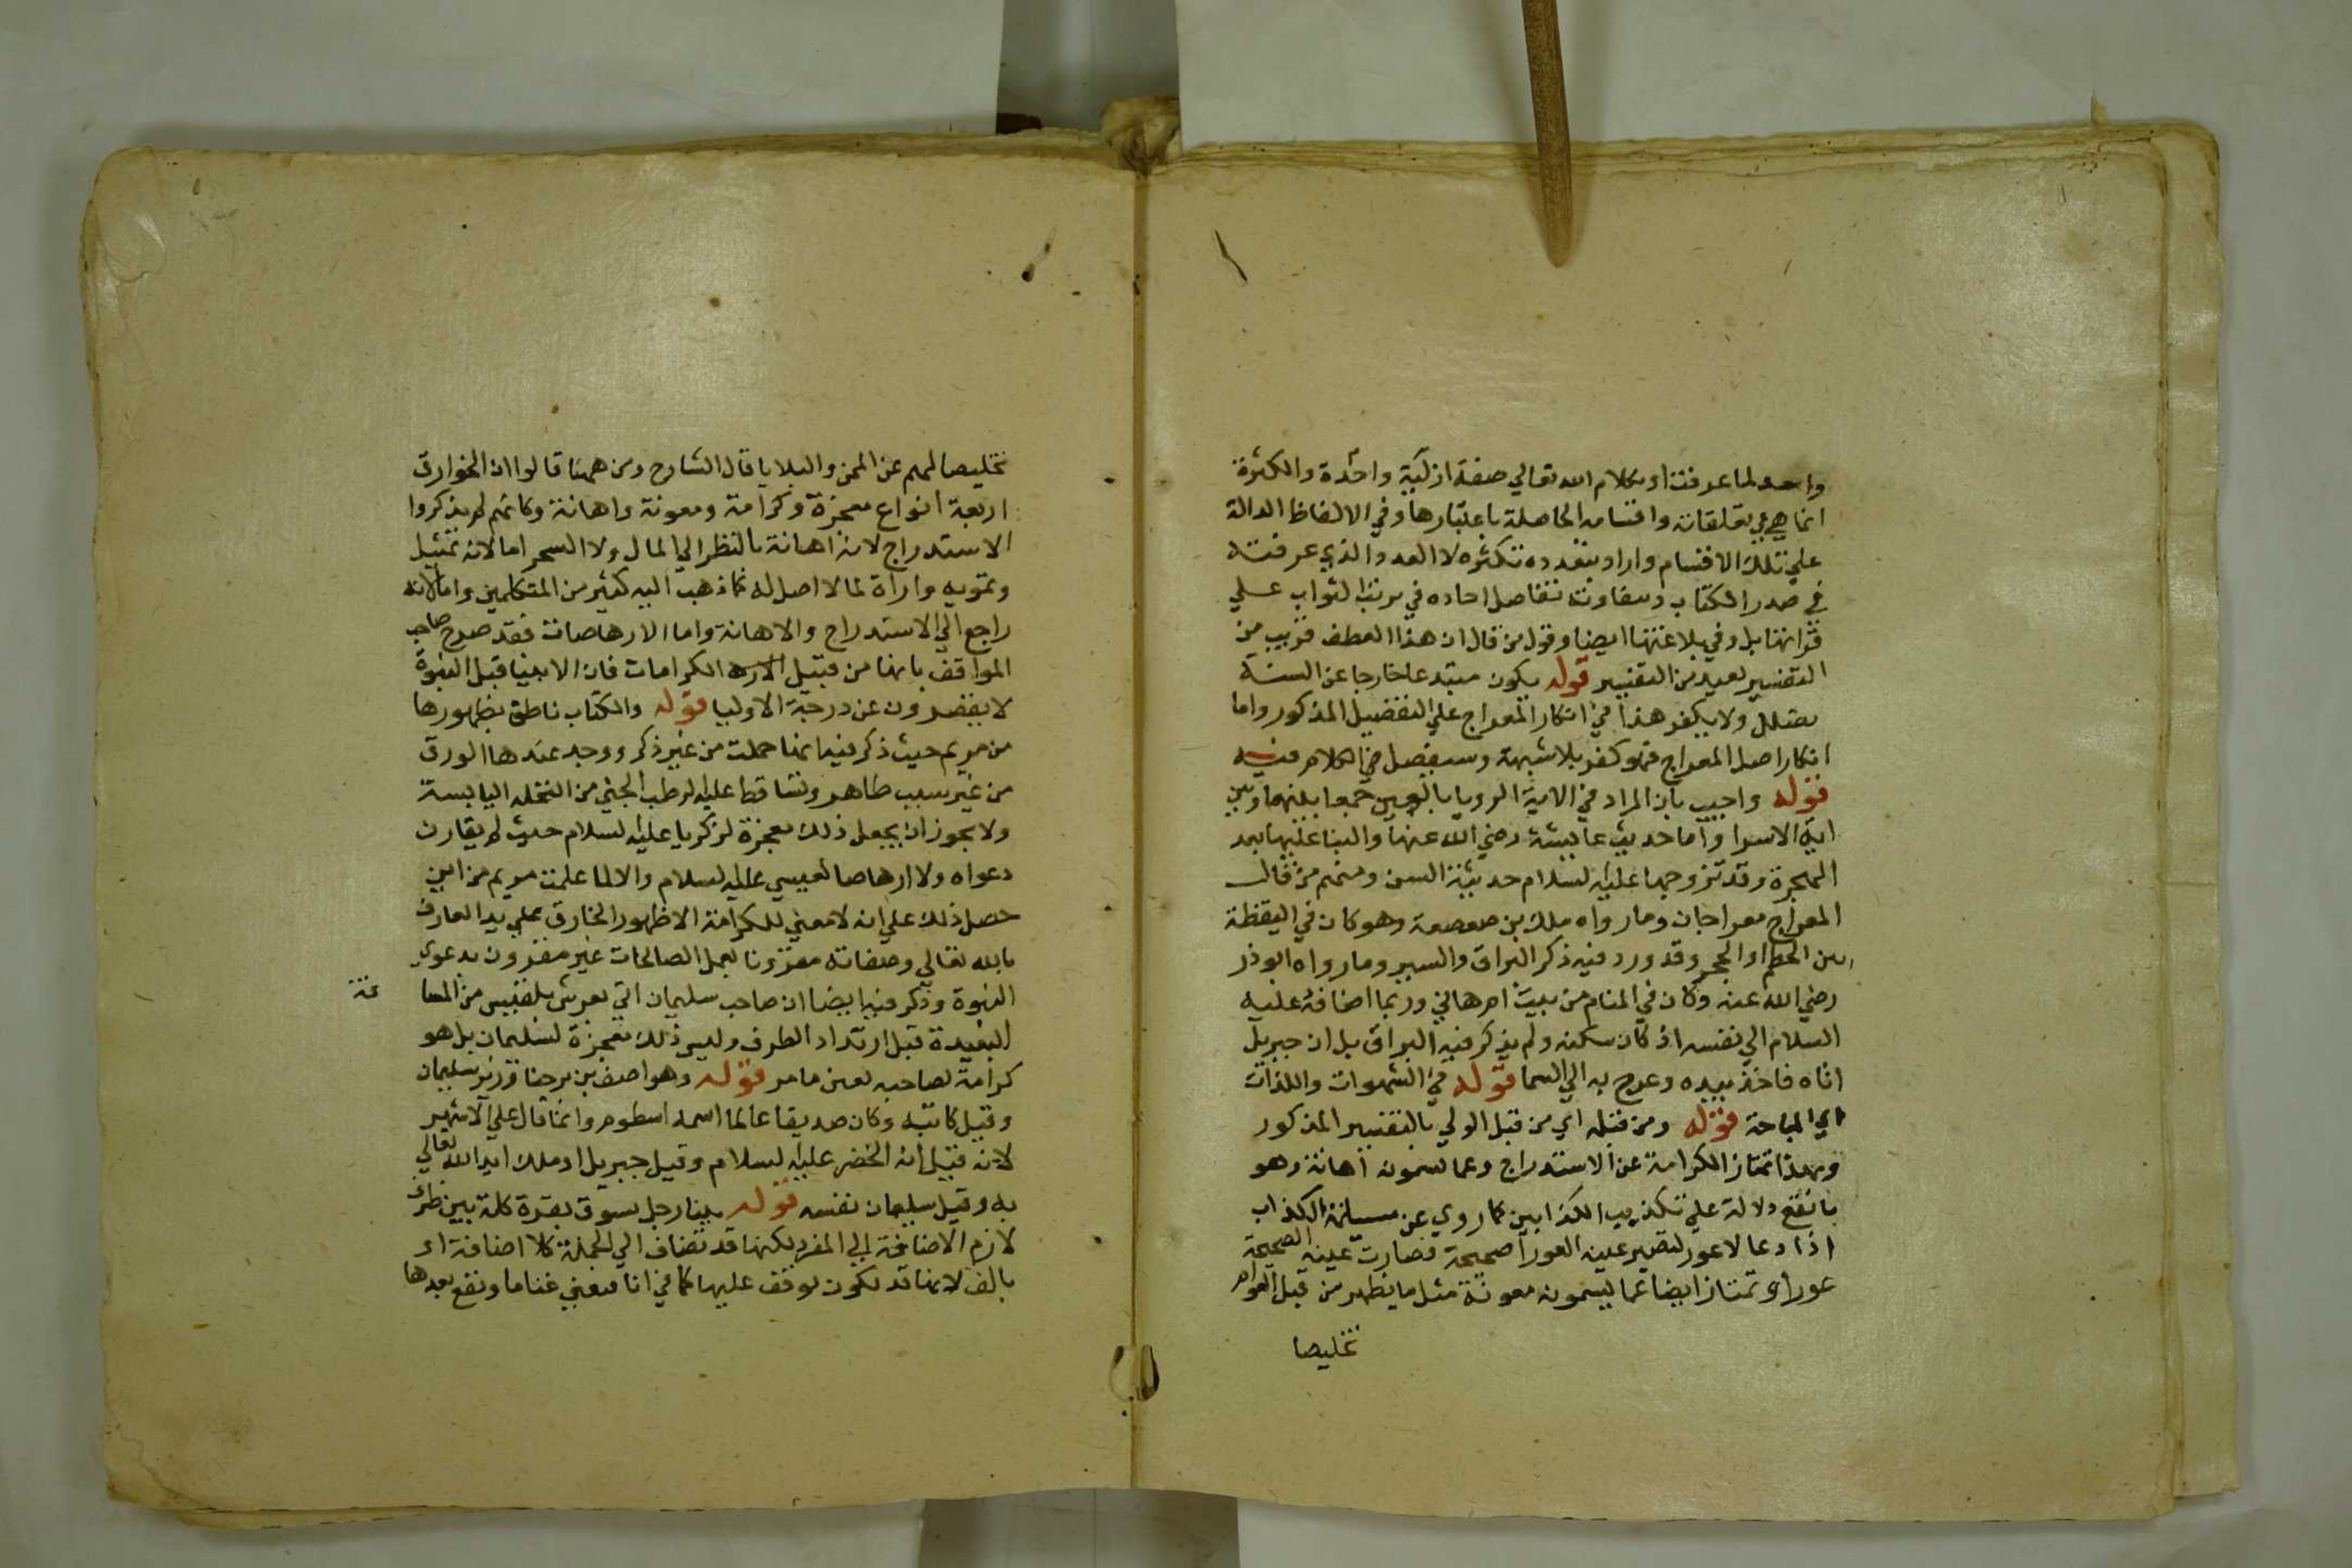 واحد لما عرفت او كلام الله تعالي صفة ازلية واحدة والكثرة
انما هي في تعلقاته واقسامه الحاصلة باعتبارها وفي الالفاظ الدالة
علي تلك الاقسام واراد بتعدده تكثره لا العدد الذي عرفته
في صدر الكتاب وبتفاوته تفاضل احاده في مرتب الثواب علي
قراتها بل وفي بلاغتها ايضا وقول من قال ان هذا العطف قريب من
التفسير بعيد من التفسير قوله يكون مبتدعا خارجا عن السنة
يضلل ولا يكفر هذا في انكار المعراج علي التفصيل المذكور واما
انكار اصل المعراج فهو كفر بلا شبهة وسيفصل في الكلام فيه
قوله واجيب بان المراد في الاية الرويا بالعين جمعا بينها وبين
اية الاسرا واما حديث عايشة رضي الله عنها والبنا عليها بعد
الهجرة وقد تزوجها عليه السلام حديثة السن ومنهم من قال
المعراج معراجان وما رواه ملك بن صعصعة وهو كان في اليقظة
من الحطم او الحجر وقد ورد فيه ذكر البراق والسير وما رواه ابوذر
رضي الله عنه وكان في المنام من بيت ام هاني وربما اضافه عليه
السلام الي نفسه اذ كان سكنه ولم يذكر فيه البراق بل ان جبريل
اتاه فاخذ بيده وعرج به الي السما قوله في الشهوات واللذات
اي المباحة قوله ومن قبله اي من قبل الولي بالتفسير المذكور
وبهذا تمتاز الكرامة عن الاستدراج وعما يسمونه اهانة وهو
ما تقع دلالة علي تكذيب الكذابين كما روي عن مسيلمة الكذاب
اذا دعا لاعور لتصير عينه العورا صحيحة فصارت عينه الصحيحة
عورا و تمتاز ايضا عما يسمونه معونة مثل ما يظهر من قبل العوام
تخليصا
تخليصا لهم عن المحن والبلايا قال الشارح ومن ههنا قالوا ان الخوارق
اربعة انواع معجزة وكرامة ومعونة واهانة وكانهم لم يذكروا
الاستدراج لانه اهانة بالنظر الي المال ولا السحر اما لانه تمثيل
وتمويه واراة لما لا اصل له كما ذهب اليه كثير من المتكلمين واما لانه
راجع الي الاستدراج والاهانة واما الارهاصات فقد صرح صاحب
المواقف بانها من قبيل الكرامات فان الانبيا قبل النبوة
لا يقصرون عن درجة الاوليا قوله والكتاب ناطق بظهورها
من مريم حيث ذكر فيها انها حملت من غير ذكر ووجد عندها الورق
من غير سبب ظاهر وتساقط عليها الرطب الجني من النخلة اليابسة
ولا يجوز ان يجعل ذلك معجزة لزكريا عليه السلام حيث لم يقارن
دعواه ولا ارهاصا لعيسي عليه السلام والا لما علمت مريم من اين
حصل ذلك علي انه لا معني للكرامة الا ظهور الخارق علي يد العارف
بالله تعالي وصفاته مقرونا بعمل الصالحات غير مقرون بدعوي
النبوة وذكر فيه ايضا ان صاحب سليمان اتي بعرش بلقيس من المسا
فة
البعيدة قبل ارتداد الطرف وليس ذلك معجزة لسليمان بل هو
كرامة لصاحبه بعين ما مر قوله وهو اصف بن برخيا وزير سليمان
وقيل كاتبه وكان صديقا عالما اسمه اسطوم وانما قال علي الاشهر
لانه قيل انه الخضر عليه السلام وقيل جبريل او ملك ايد الله تعالي
به وقيل سليمان نفسه قوله بينا رجل يسوق بقرة كلمة بين ظرف
لازم الاضافة الي المفرد لكنها قد تضاف الي الجملة كلا اضافة او
بالف لانها قد تكون لوقف عليها كما في انا فمعني غناما وتقع بعدها